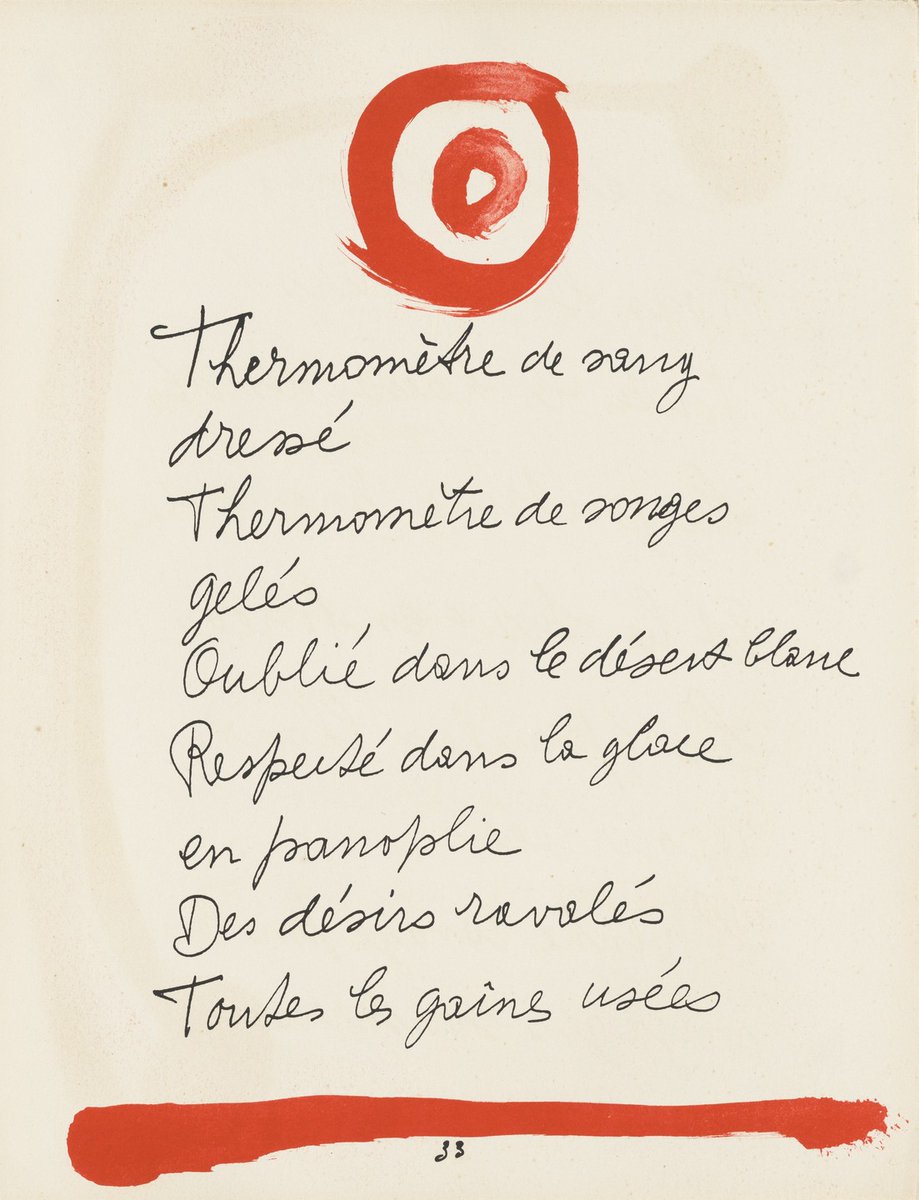 Thermomètre de sang
dressé
Thermomètre de songes
gelés
Oublié dans le désert blanc
Respecté dans la glace
en panoplie
Des désirs ravalés
Toutes les gaînes usées
33